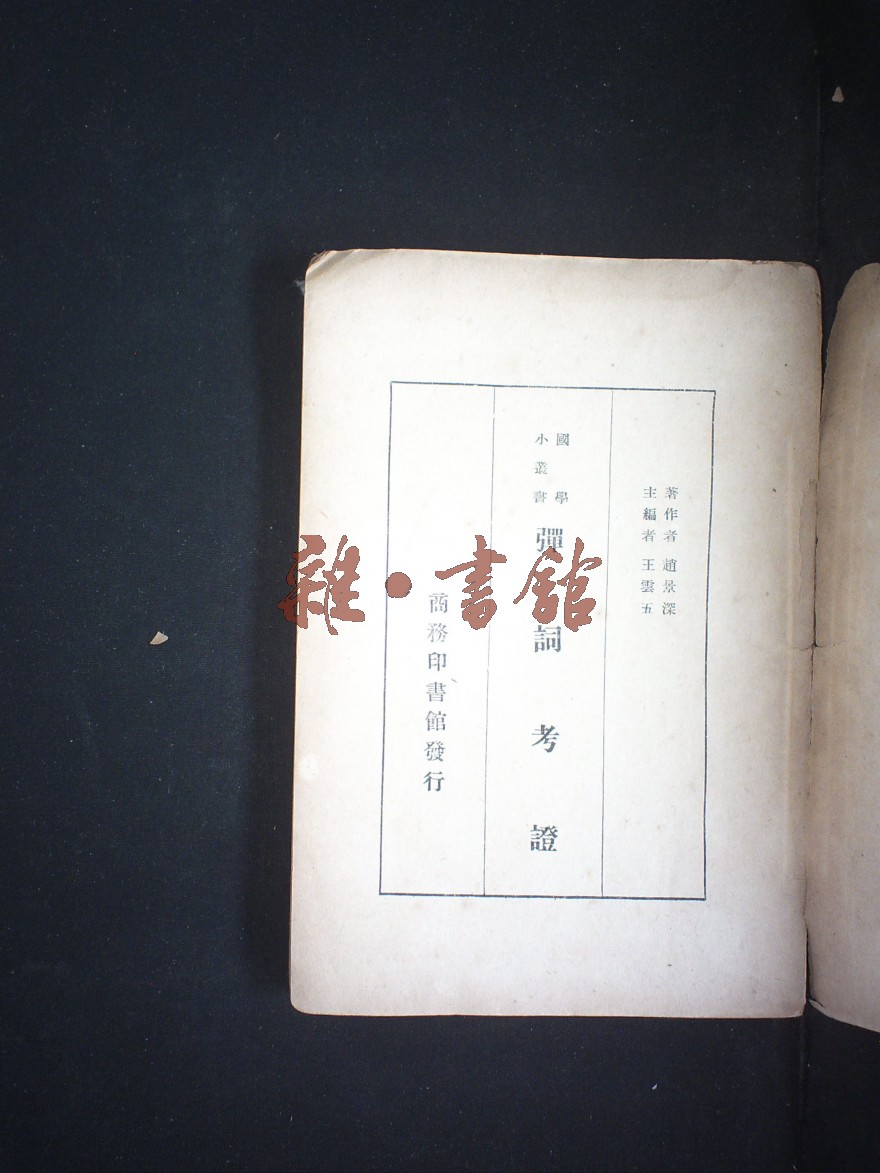 著作者 趙景深
主編者 王雲五
國學
小叢書
彈詞考證
商務印書館發行
雜·書館